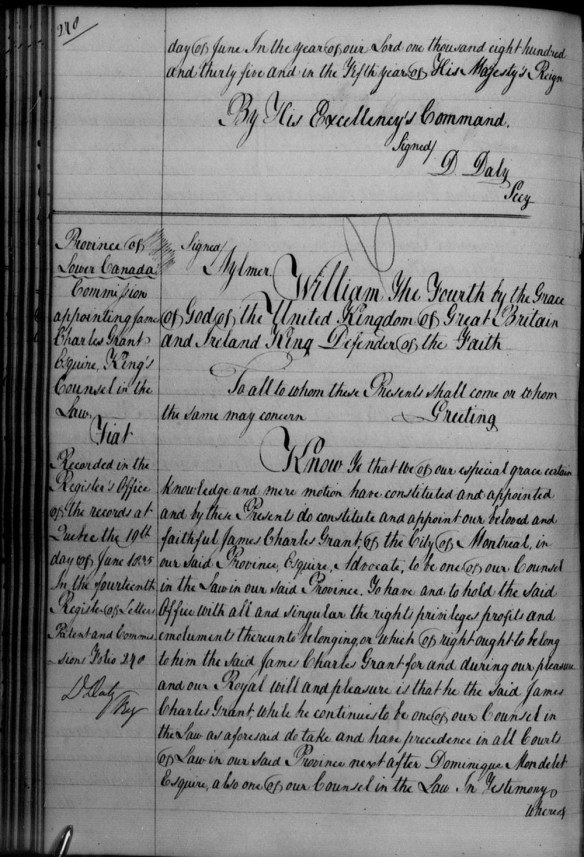 270
day of June In the year of our Lord one thousand eight hundred
and thirty five and in the Fifth year of His Majesty's Reign
By His Excellency's Command.
Signed/
D Daly
Secy
Province of
Lower Canada
Commission
appointing James
Charles Grant
Esquire, King's
Counsel in the
Law.
Fiat
Recorded in the
Register's Office
of the records at
Quebec the 19th
day of June 1835
In the fourteenth
Register of Letters
Patent and Commis
-sions Folio 270
D. Daly
Reg
Signed/
Aylmer.
William The Fourth by the Grace
of God of the United Kingdom of Great Britain
and Ireland King Defender of the Faith
To all to whom these Presents shall come or whom
the same may concern Greeting
Know Ye that We of our especial grace certain
knowledge and mere motion have constituted and appointed
and by these Presents do constitute and appoint our beloved and
faithful James Charles Grant, of the City of Montreal, in
our said Province, Esquire, Advocate, to be one of our Counsel
in the Law in our said Province. To have and to hold the said
Office with all and singular the rights privileges profits and
emoluments thereunto belonging or which of right ought to belong
to him the said James Charles Grant for and during our pleasure
and our Royal will and pleasure is that he the said James
Charles Grant, while he continues to be one of our Counsel in
the Law as aforesaid do take and have precedence in all Courts
of Law in our said Province next after Dominique Mondelet
Esquire, also one of our Counsel in the Law In Testimony
whereof